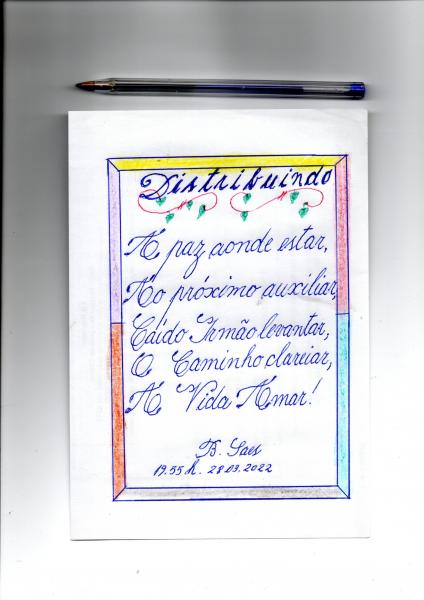 Distribuindo
A paz aonde estar,
Ao próximo auxiliar,
Caído Irmão levantar,
O Caminho clareiar,
A Vida Amar!
B. Saes
19.55 h. 28.03.2022